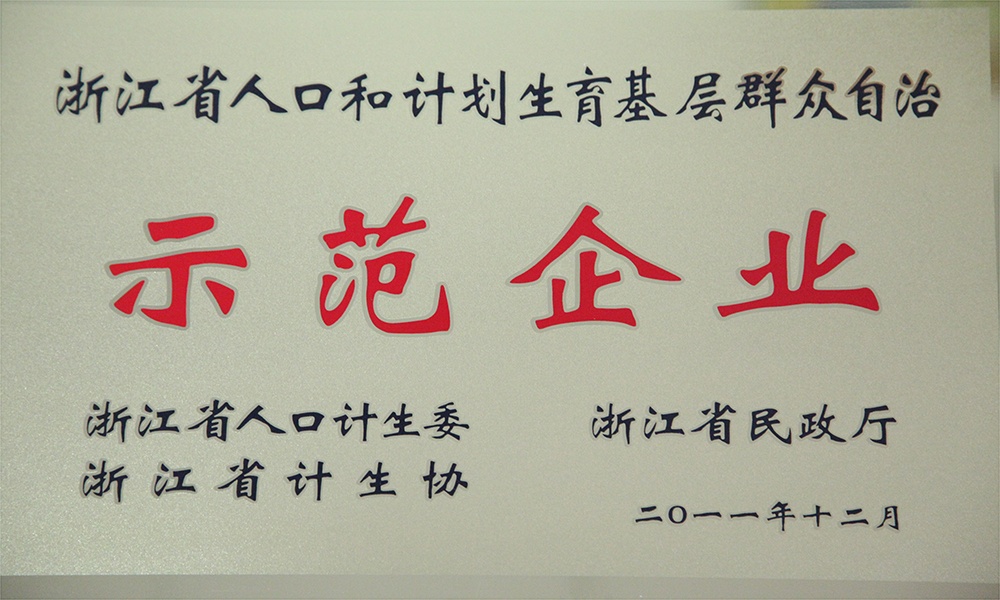 浙江省人口和计划生育基层群众自治
示范企业
浙江省人口计生委
浙江省民政厅
浙江省计生协
二〇一一年十二月